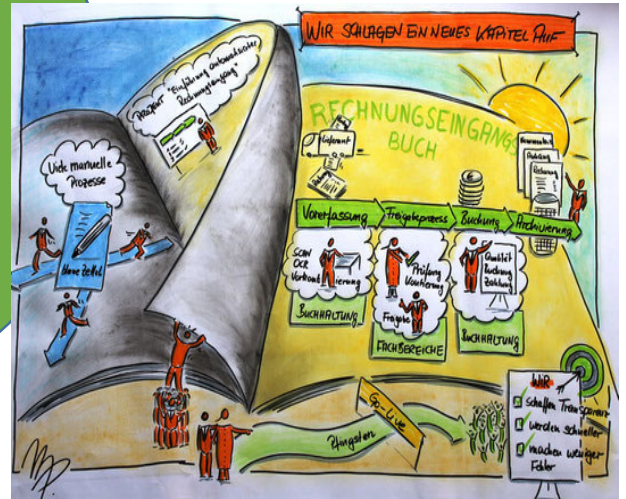 WIR SCHLAGEN EIN NEUES KAPITEL AUF
PROJEKT "Einführung automatisierter
Rechnungseingang"
Viele manuelle
Prozesse
blaue Zettel
RECHNUNGSEINGANGS
BUCH
Lieferant
Rechnung
Vorerfassung
Freigabeprozess
Buchung
Archivierung
SCAN
OCR
Vorkontierung
BUCHHALTUNG
Prüfung
Kontierung
Freigabe
FACHBEREICHE
Qualität
Buchung
Zahlung
BUCHHALTUNG
Go-Live
Pfingsten
WIR
schaffen Transparenz
werden schneller
machen weniger
Fehler